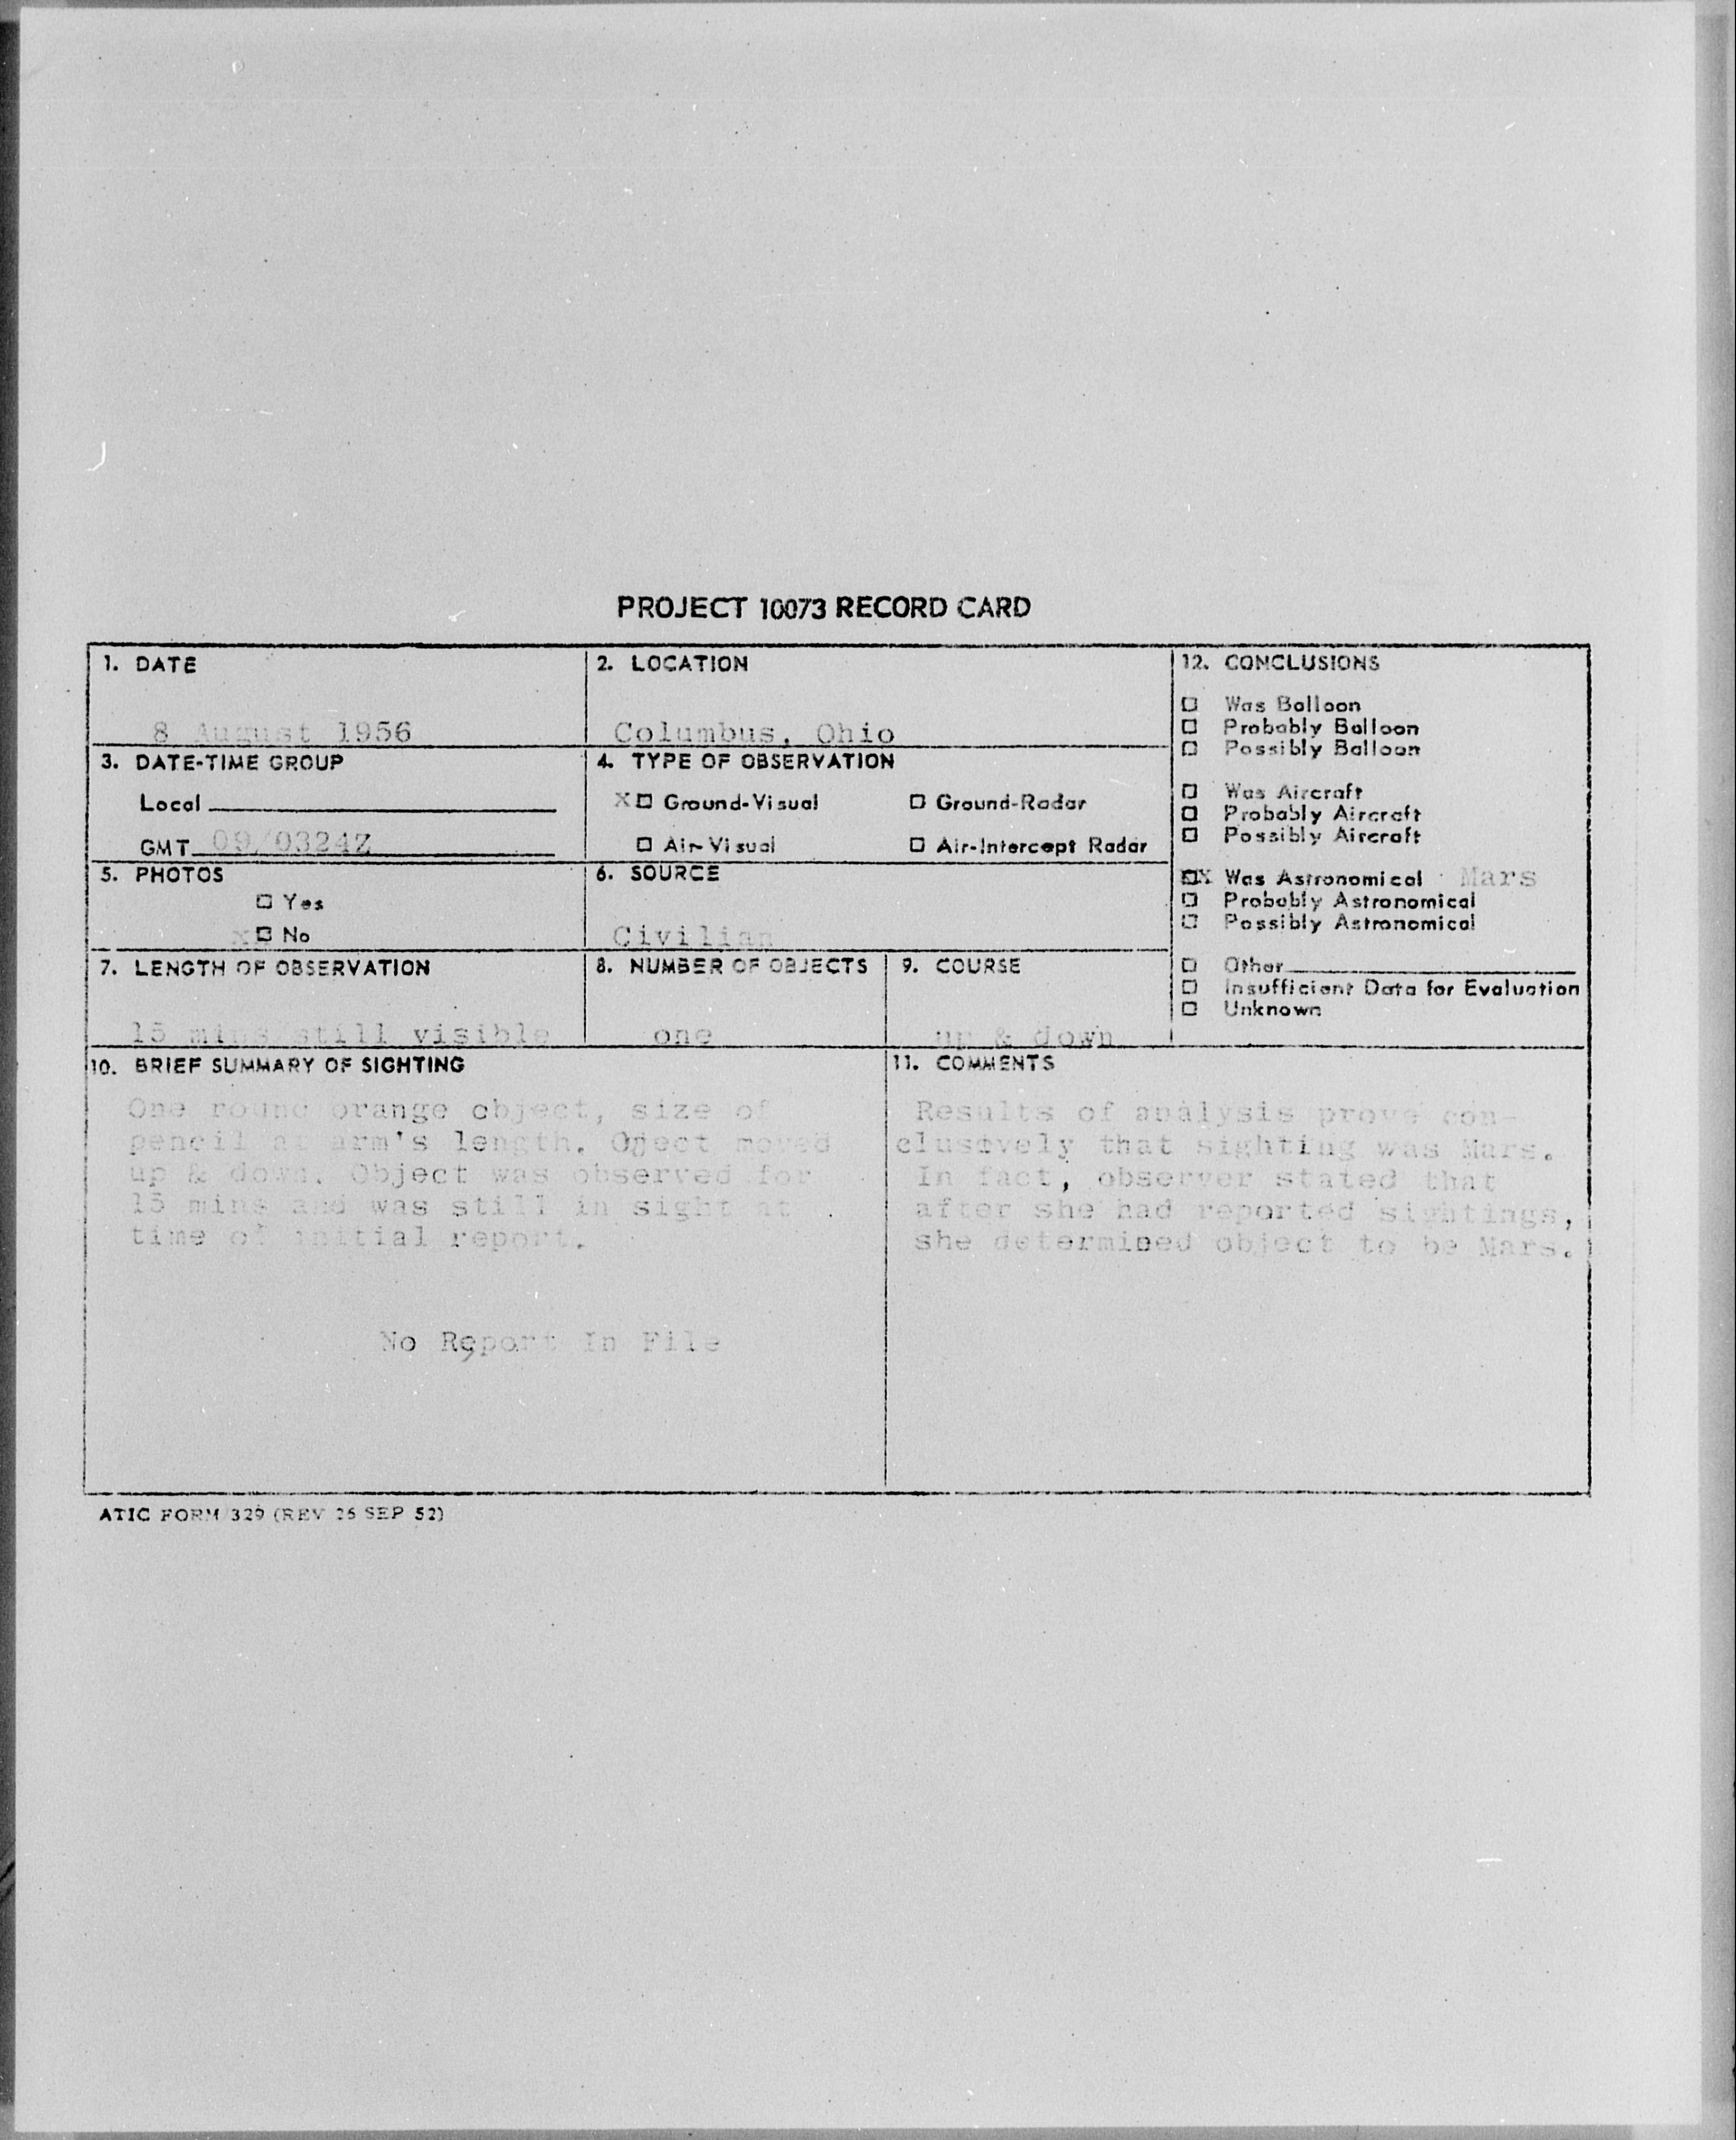 PROJECT 10073 RECORD CARD
1. DATE
8 August 1956
2. LOCATION
Columbus, Ohio
3. DATE-TIME GROUP
Local
GMT 09/0324Z
4. TYPE OF OBSERVATION
X□ Ground-Visual □ Ground-Radar
□ Air-Visual □ Air-Intercept Radar
5. PHOTOS
□ Yes
x□ No
6. SOURCE
Civilian
7. LENGTH OF OBSERVATION
15 mins still visible
8. NUMBER OF OBJECTS
one
9. COURSE
up & down
12. CONCLUSIONS
□ Was Balloon
□ Probably Balloon
□ Possibly Balloon
□ Was Aircraft
□ Probably Aircraft
□ Possibly Aircraft
XX Was Astronomical Mars
□ Probably Astronomical
□ Possibly Astronomical
□ Other
□ Insufficient Data for Evaluation
□ Unknown
10. BRIEF SUMMARY OF SIGHTING
One round orange object, size of
pencil at arm's length. Oject moved
up & down. Object was observed for
15 mins and was still in sight at
time of initial report.
No Report In File
11. COMMENTS
Results of analysis prove con-
clusively that sighting was Mars.
In fact, observer stated that
after she had reported sightings,
she determined object to be Mars.
ATIC FORM 329 (REV 26 SEP 52)